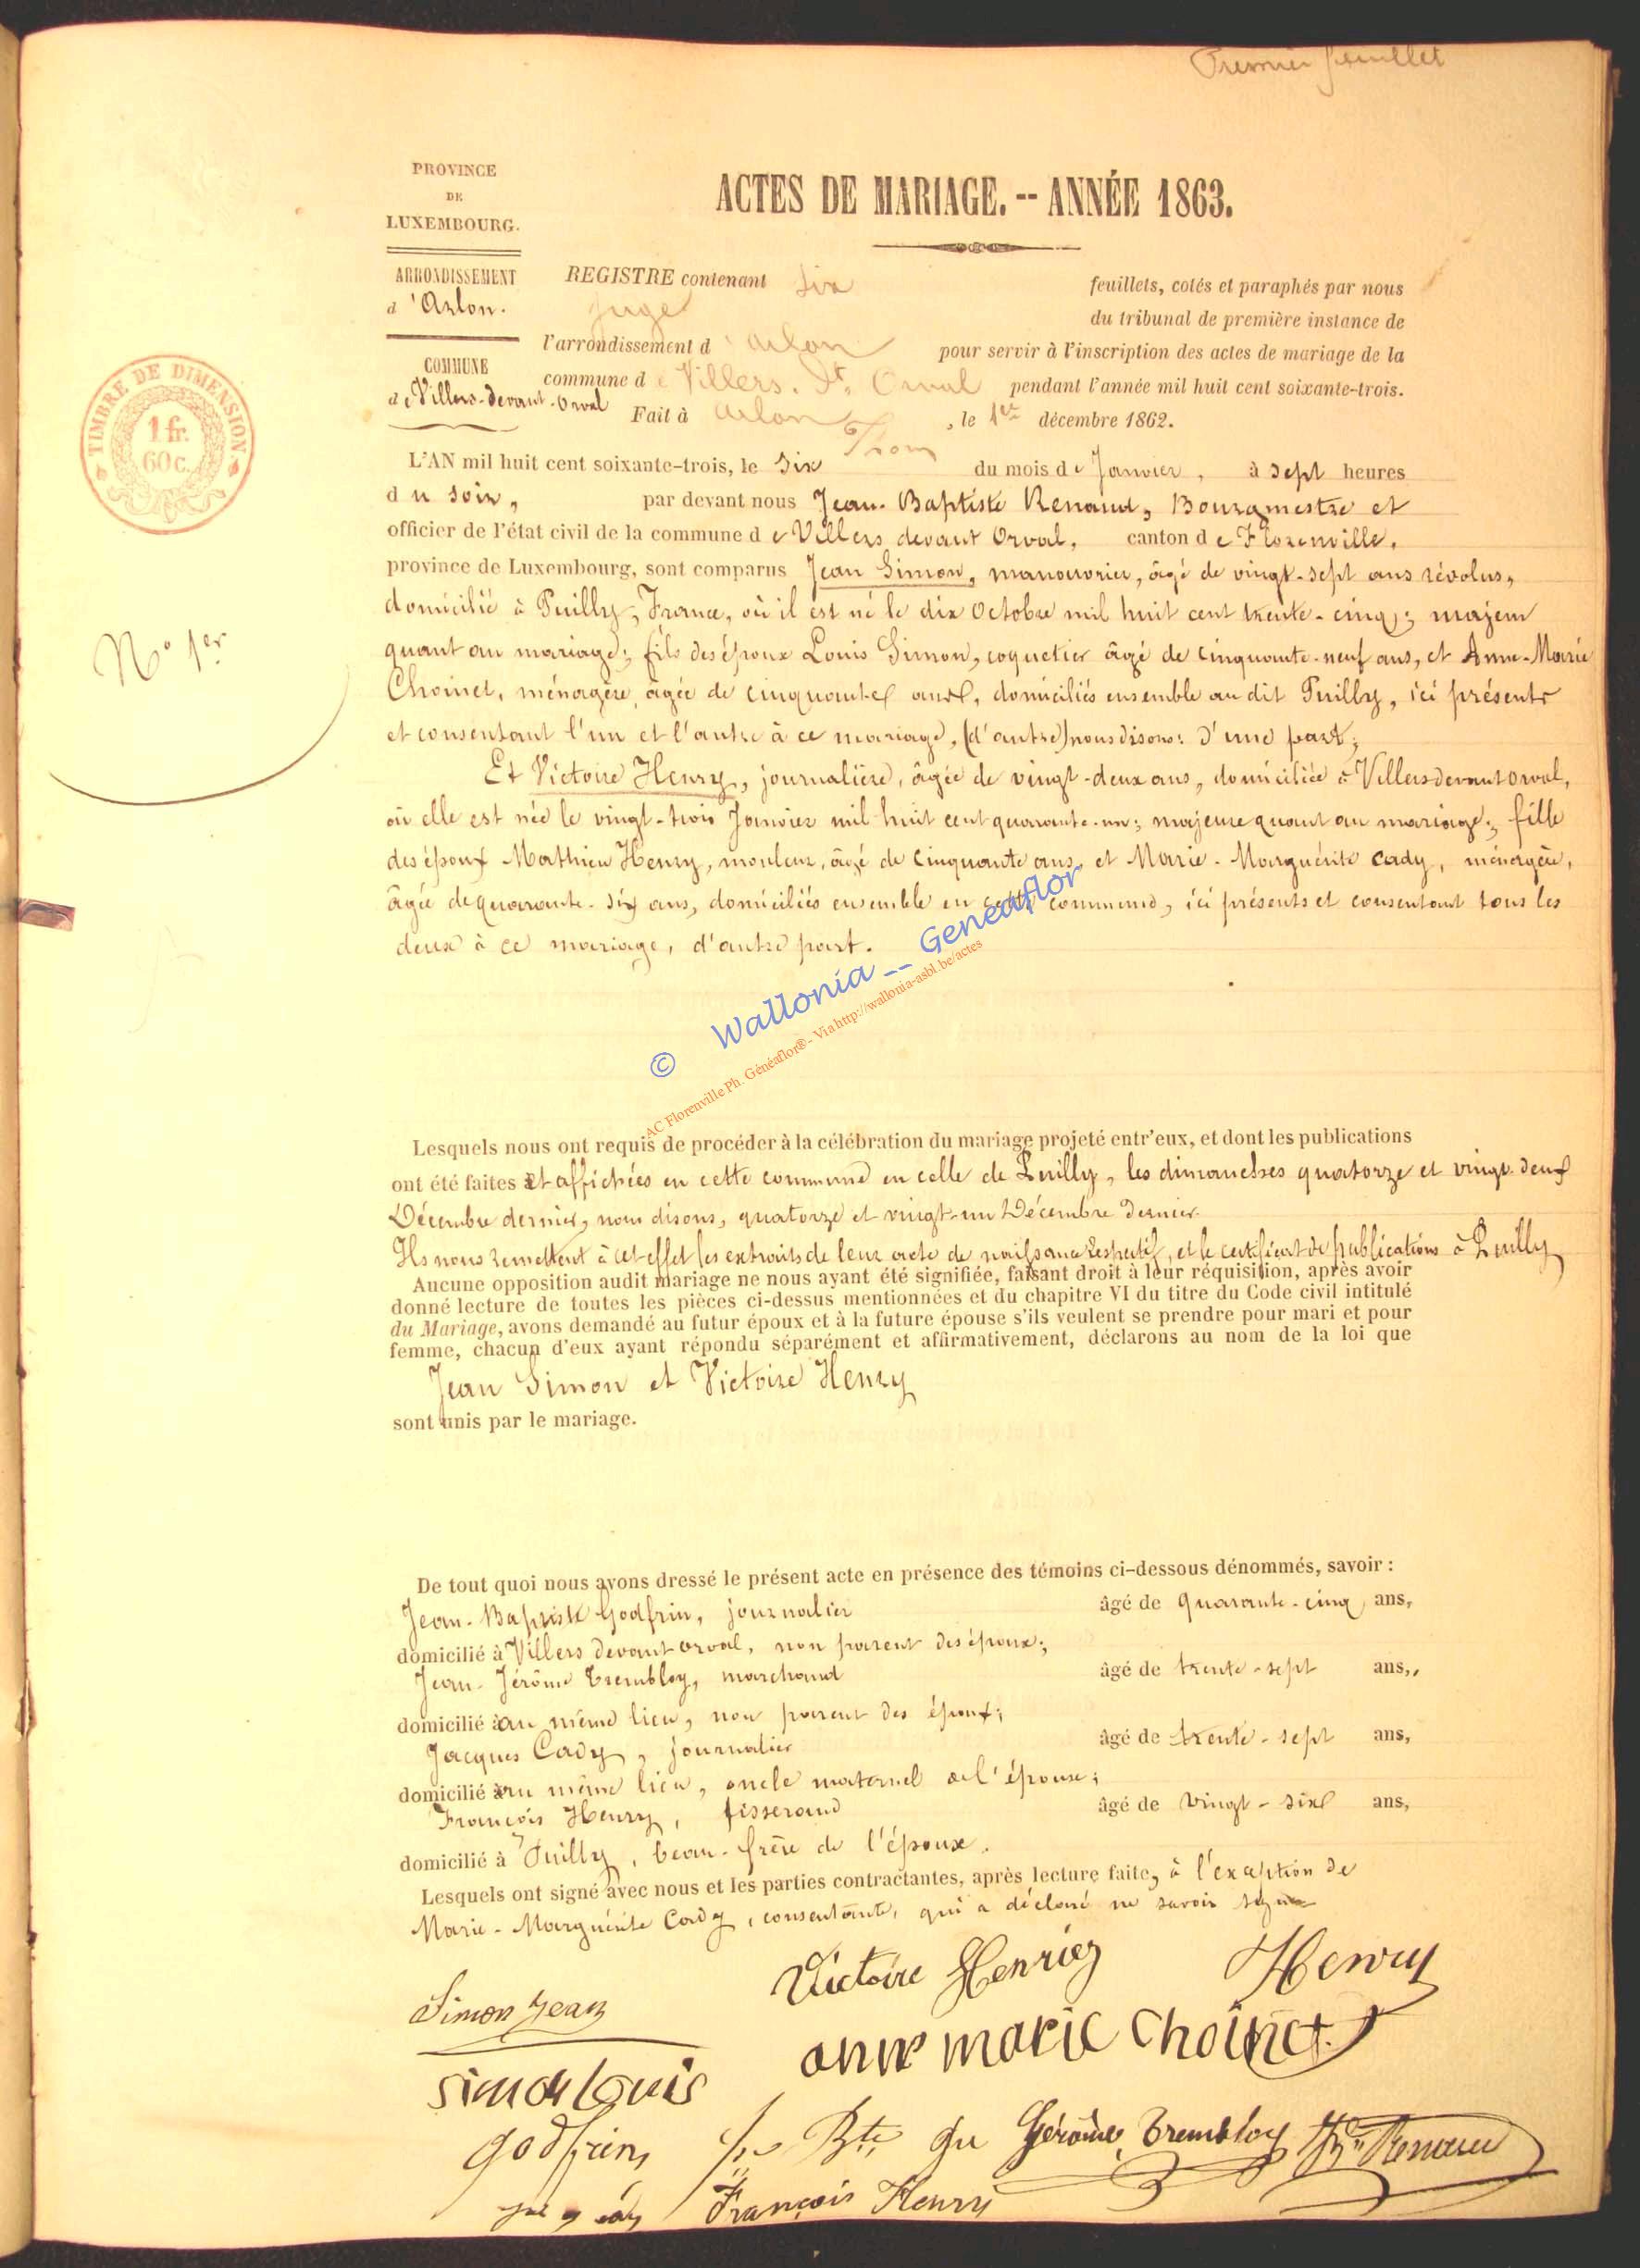 Premier feuillet
PROVINCE
DE
LUXEMBOURG.
ACTES DE MARIAGE. -- ANNÉE 1863.
ARRONDISSEMENT
d'Arlon.
COMMUNE
de Villers-devant-Orval
REGISTRE contenant six feuillets, cotés et paraphés par nous
juge du tribunal de première instance de
l'arrondissement d'Arlon pour servir à l'inscription des actes de mariage de la
commune de Villers. dt. Orval pendant l'année mil huit cent soixante-trois.
Fait à Arlon, le 1er décembre 1862.
TIMBRE DE DIMENSION
1 fr.
60 c.
N° 1er
L'AN mil huit cent soixante-trois, le six du mois de Janvier, à sept heures
du soir, par devant nous Jean-Baptiste Renaud, Bourgmestre et
officier de l'état civil de la commune de Villers devant Orval, canton de Florenville,
province de Luxembourg, sont comparus Jean Simon, manouvrier, âgé de vingt-sept ans révolus,
domicilié à Puilly, France, où il est né le dix Octobre mil huit cent trente-cinq; majeur
quant au mariage; fils des époux Louis Simon, coquetier âgé de cinquante-neuf ans, et Anne-Marie
Choinet, ménagère, âgée de cinquante ans, domiciliés ensemble au dit Puilly, ici présents
et consentant l'un et l'autre à ce mariage, (d'autre) nous disons: d'une part;
Et Victoire Henry, journalière, âgée de vingt-deux ans, domiciliée à Villers devant orval,
où elle est née le vingt-trois Janvier mil huit cent quarante-un; majeure quant au mariage; fille
des époux Mathieu Henry, mouleur, âgé de cinquante ans, et Marie-Marguérite Cady, ménagère,
âgée de quarante-six ans, domiciliés ensemble en cette commune, ici présents et consentant tous les
deux à ce mariage, d'autre part.
© Wallonia -- Geneaflor
AC Florenville Ph. Généaflor® - Via http://wallonia-asbl.be/actes
Lesquels nous ont requis de procéder à la célébration du mariage projeté entr'eux, et dont les publications
ont été faites et affichées en cette commune en celle de Puilly, les dimanches quatorze et vingt-deux
Décembre dernier, nous disons, quatorze et vingt-un Décembre dernier
Ils nous remettent à cet effet les extraits de leur acte de naissance respectif, et le certificat de publications à Puilly
Aucune opposition audit mariage ne nous ayant été signifiée, faisant droit à leur réquisition, après avoir
donné lecture de toutes les pièces ci-dessus mentionnées et du chapitre VI du titre du Code civil intitulé
du Mariage, avons demandé au futur époux et à la future épouse s'ils veulent se prendre pour mari et pour
femme, chacun d'eux ayant répondu séparément et affirmativement, déclarons au nom de la loi que
Jean Simon et Victoire Henry
sont unis par le mariage.
De tout quoi nous avons dressé le présent acte en présence des témoins ci-dessous dénommés, savoir :
Jean-Baptiste Godfrin, journalier âgé de quarante-cinq ans,
domicilié à Villers devant orval, non parent des époux;
Jean-Jérôme Trembloy, marchand âgé de trente-sept ans,
domicilié au même lieu, non parent des époux;
Jacques Cady, journalier âgé de trente-sept ans,
domicilié au même lieu, oncle maternel de l'épouse;
François Henry, tisserand âgé de vingt-six ans,
domicilié à Puilly, beau-frère de l'époux.
Lesquels ont signé avec nous et les parties contractantes, après lecture faite, à l'exception de
Marie-Marguérite Cady, consentante, qui a déclaré ne savoir signer
Simon Jean Victoire Henriez Henry
Simon Louis anne marie Choinet
godfrin Jérôme Trembloy Renaud
François Henry